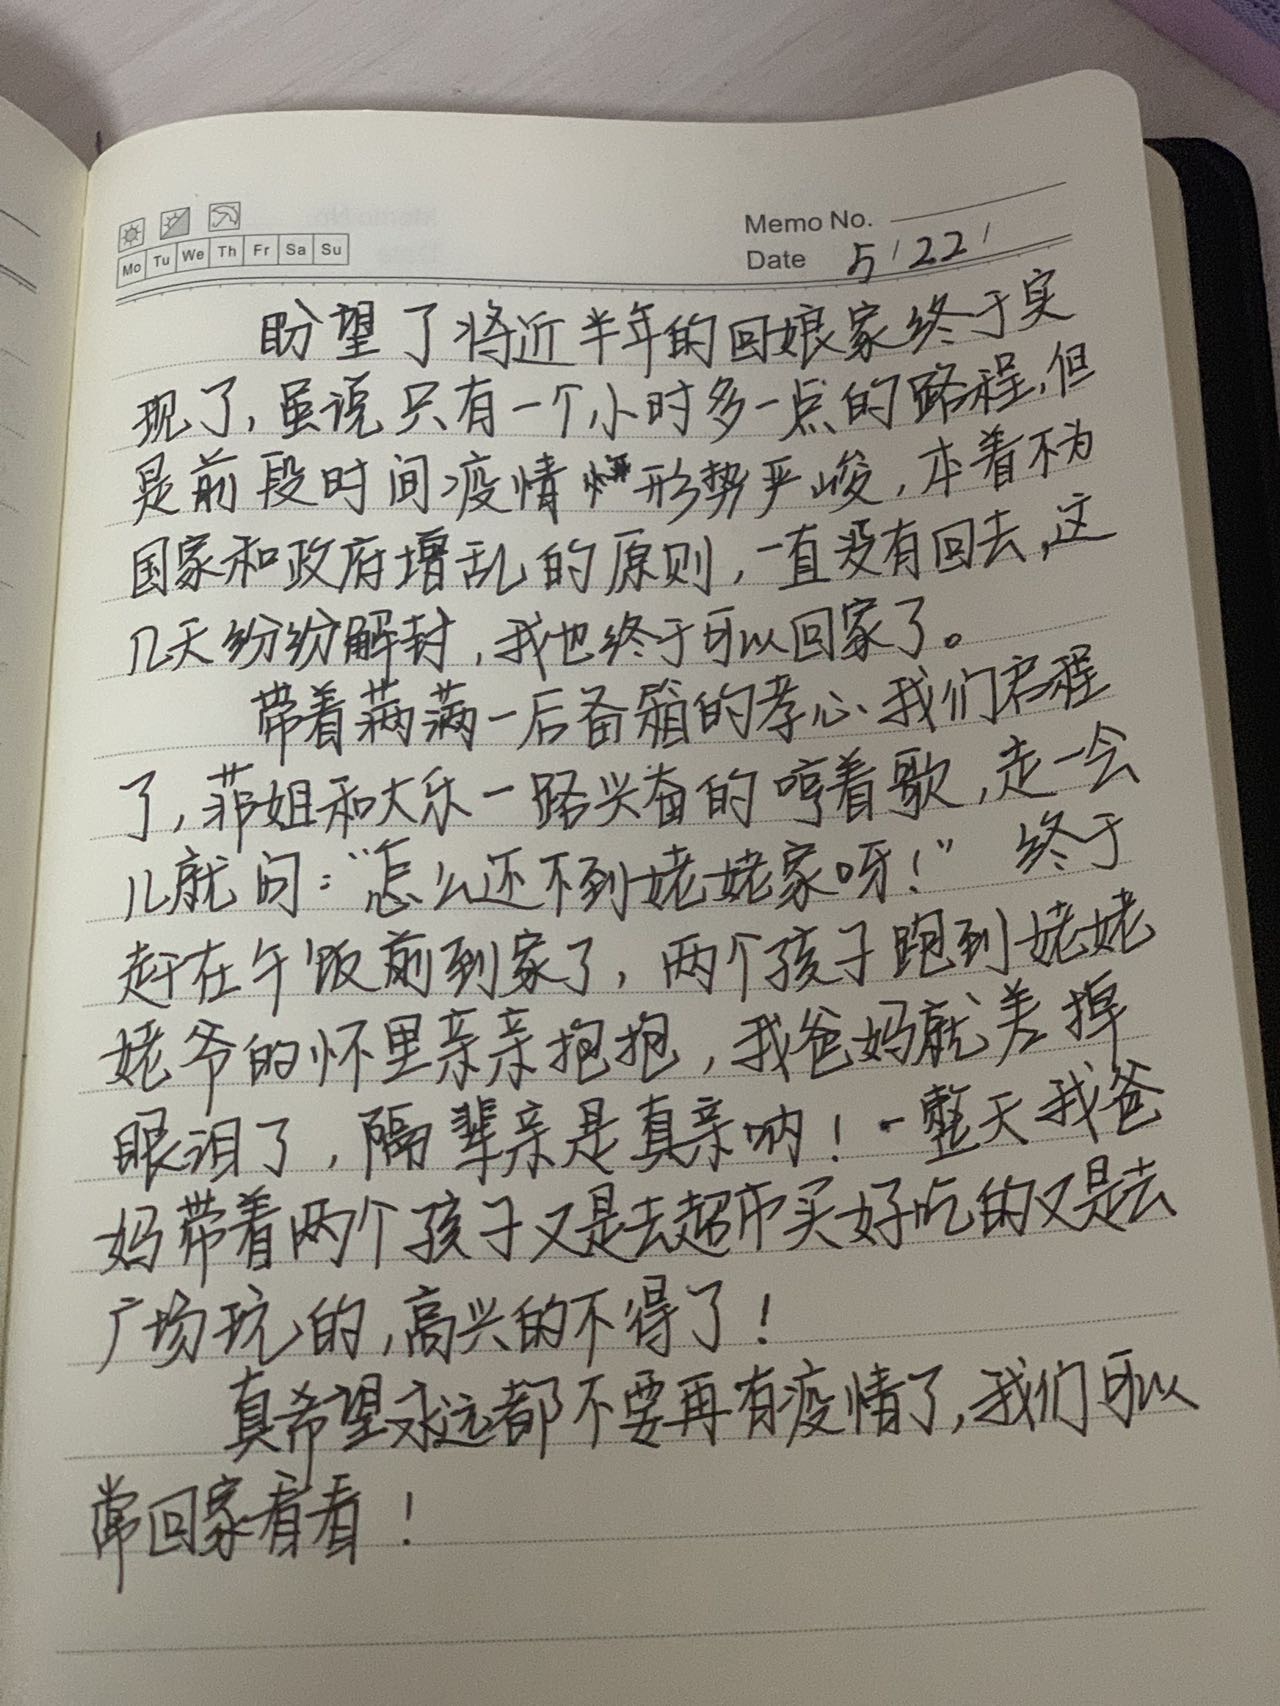 Memo No.
Mo Tu We Th Fr Sa Su
Date 5/22/
盼望了将近半年的回娘家终于实
现了,虽说只有一个小时多一点的路程,但
是前段时间疫情形势严峻,本着不为
国家和政府增乱的原则,一直没有回去,这
几天纷纷解封,我也终于可以回家了。
带着满满一后备箱的孝心、我们启程
了,菲姐和大乐一路兴奋的哼着歌,走一会
儿就问:“怎么还不到姥姥家呀!” 终于
赶在午饭前到家了,两个孩子跑到姥姥
姥爷的怀里亲亲抱抱,我爸妈就差掉
眼泪了,隔辈亲是真亲呐!一整天我爸
妈带着两个孩子又是去超市买好吃的又是去
广场玩的,高兴的不得了!
真希望永远都不要再有疫情了,我们可以
常回家看看!